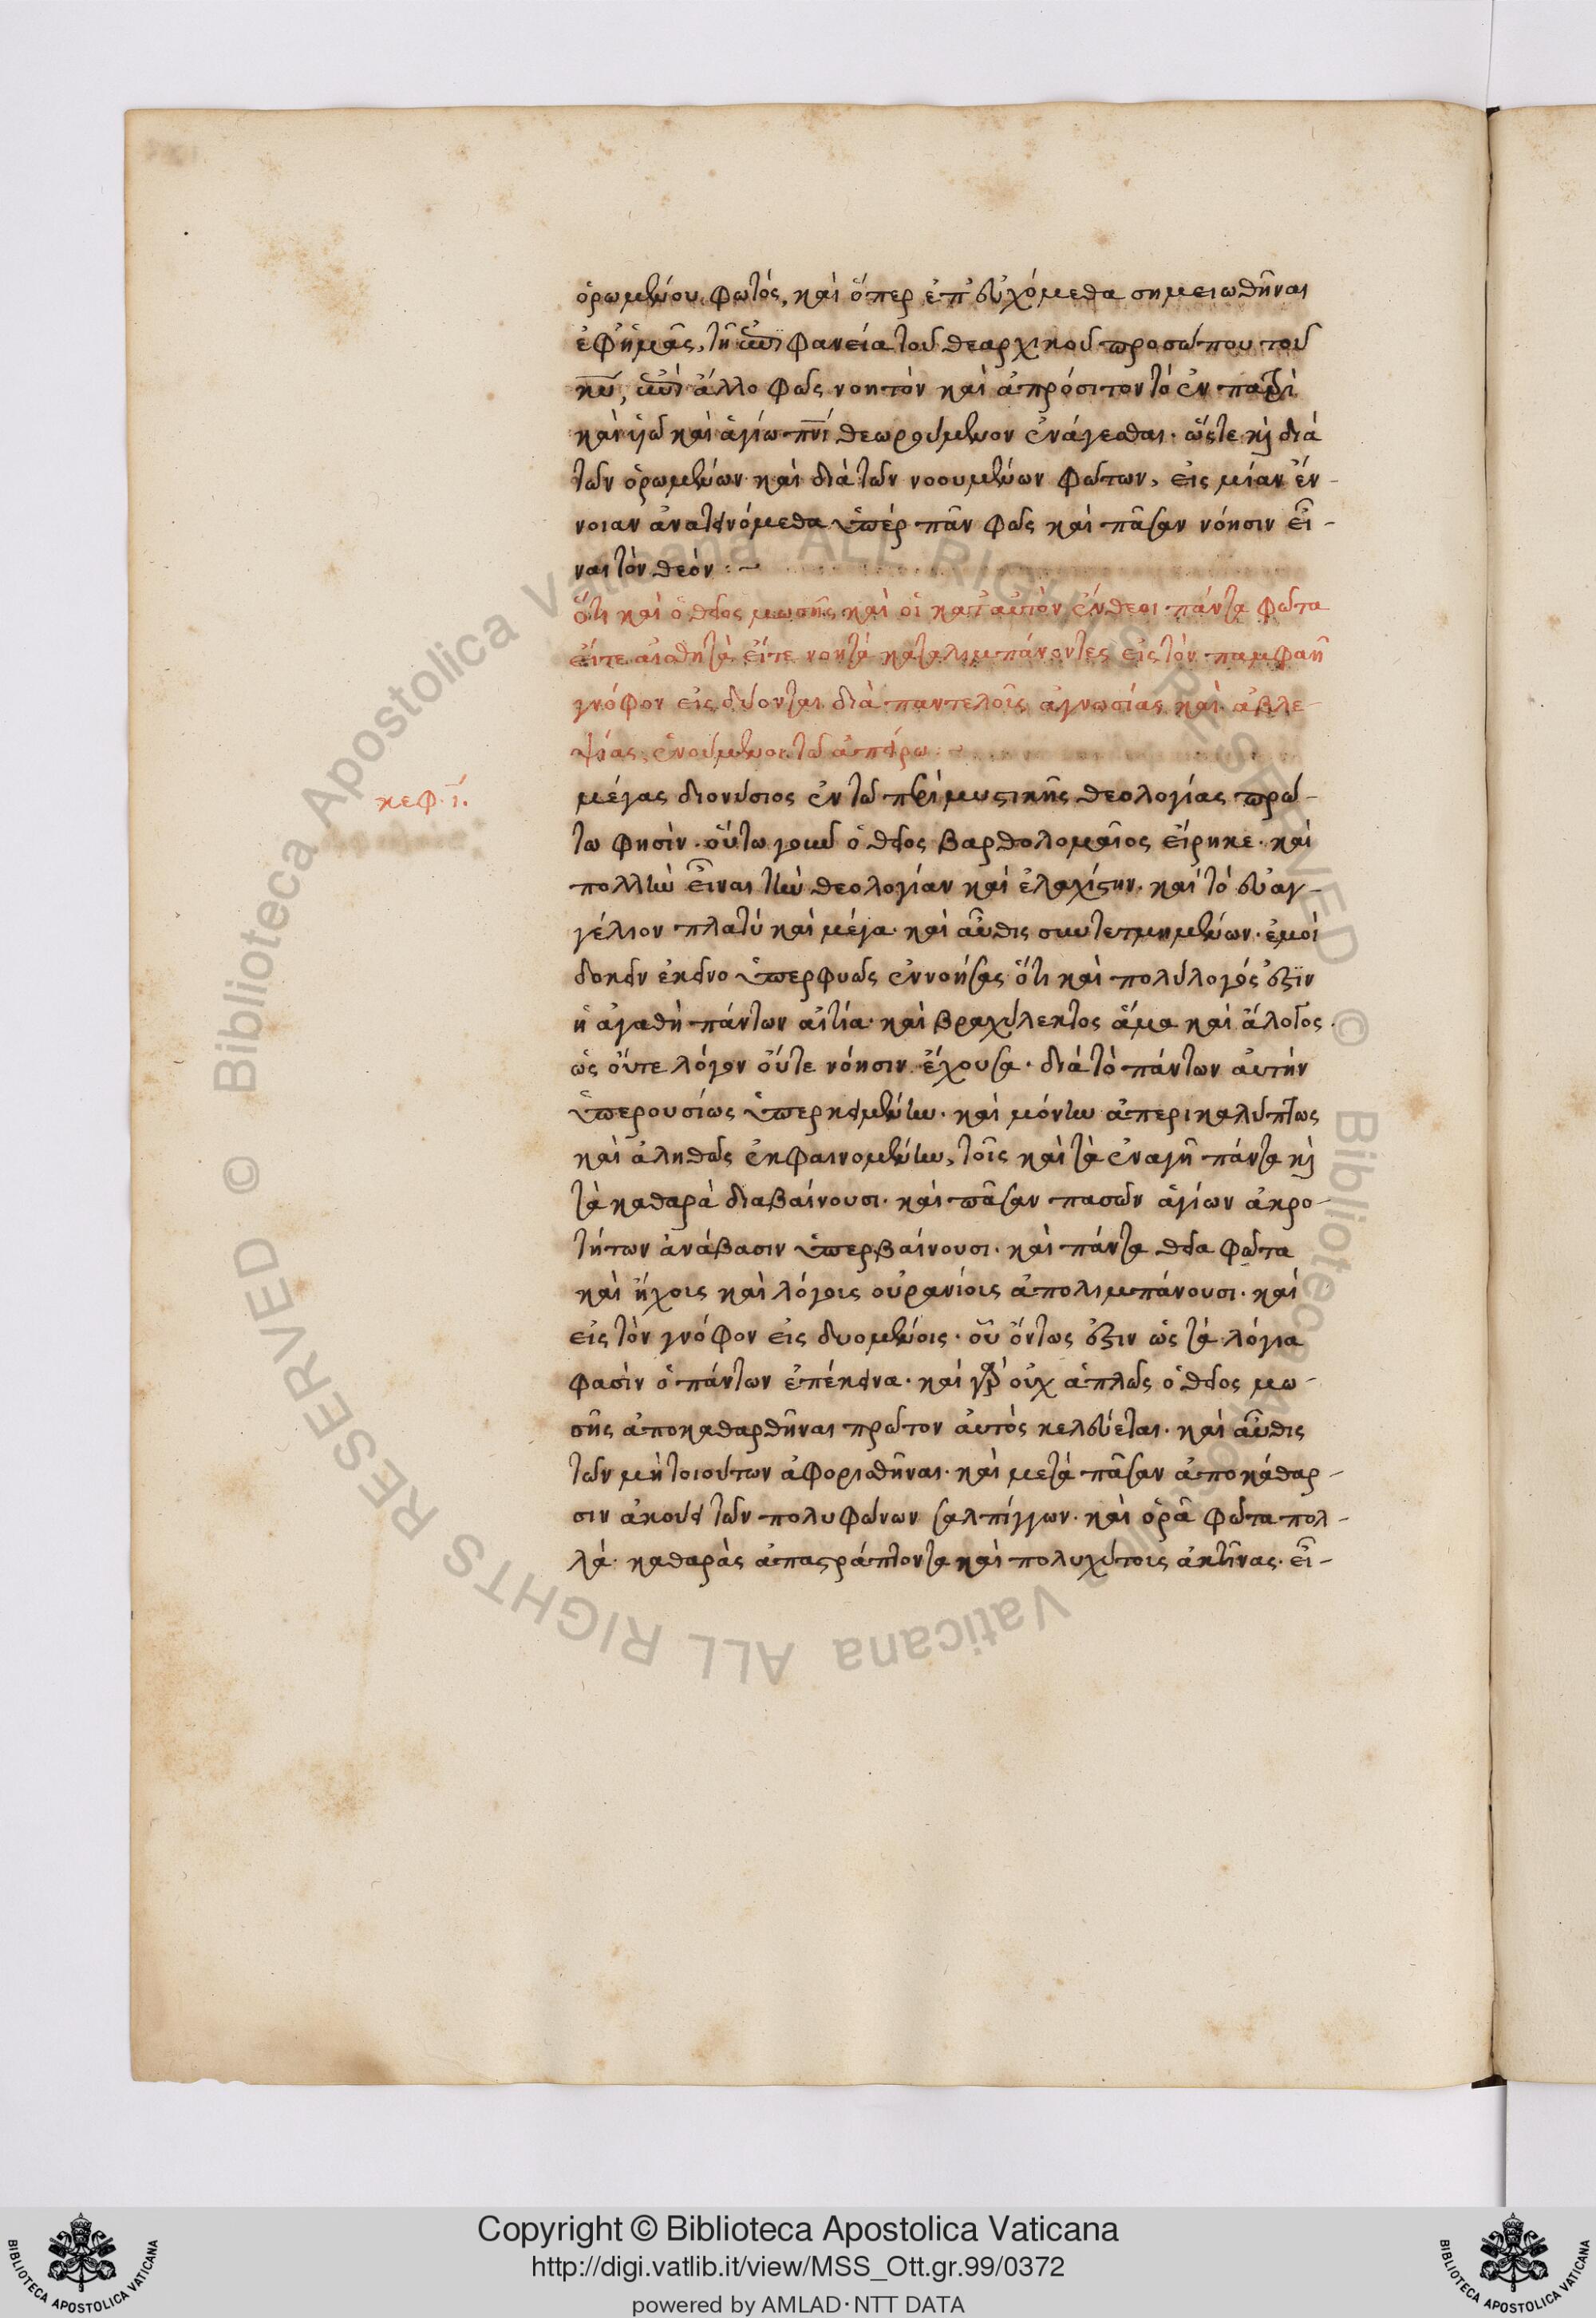 ὁρωμένου φωτός, καὶ ὅπερ ἐπευχόμεθα σημειωθῆναι
ἐφ' ἡμᾶς, τῆ ἐπιφανεία τοῦ θεαρχικοῦ προσώπου τοῦ
κυ, ἐπὶ ἄλλο φῶς νοητὸν καὶ ἀπρόσιτον τὸ ἐν πατρὶ
καὶ υἱῶ καὶ ἁγίω πνι θεωρούμενον ἐνάγεσθαι. ὥστε καὶ διὰ
τῶν ὁρωμένων καὶ διὰ τῶν νοουμένων φώτων, εἰς μίαν ἔν-
νοιαν ἀνατεινόμεθα ὑπὲρ πᾶν φῶς καὶ πᾶσαν νόησιν εἶ-
ναι τὸν θεόν :~
ὅτι καὶ ὁ θεῖος μωσῆς καὶ οἱ κατ' αὐτὸν ἔνθεοι πάντα φῶτα
εἴτε αἰσθητὰ εἴτε νοητὰ καταλιμπάνοντες εἰς τὸν παμφαῆ
γνόφον εἰς δύονται διὰ παντελοῦς ἀγνωσίας καὶ ἀβλε-
ψίας, ἑνούμενοι τῶ ἀπείρω :~
κεφ. ι.
μέγας διονύσιος ἐν τῶ περὶ μυστικῆς θεολογίας πρώ-
τω φησίν. οὕτω γοῦν ὁ θεῖος βαρθολομαῖος εἴρηκε. καὶ
πολλὴν εἶναι τὴν θεολογίαν καὶ ἐλαχίστην. καὶ τὸ εὐαγ-
γέλιον πλατὺ καὶ μέγα. καὶ αὖθις συντετμημένον. ἐμοὶ
δοκεῖν ἐκεῖνο ὑπερφυῶς ἐννοήσας ὅτι καὶ πολύλογός ἐστιν
ἡ ἀγαθὴ πάντων αἰτία. καὶ βραχύλεκτος ἅμα καὶ ἄλογος.
ὡς οὔτε λόγον οὔτε νόησιν ἔχουσα. διὰ τὸ πάντων αὐτὴν
ὑπερουσίως ὑπερκειμένην. καὶ μόνην ἀπερικαλύπτως
καὶ ἀληθῶς ἐκφαινομένην, τοῖς καὶ τὰ ἐναγῆ πάντα καὶ
τὰ καθαρὰ διαβαίνουσι. καὶ πᾶσαν πασῶν ἁγίων ἀκρο-
τήτων ἀνάβασιν ὑπερβαίνουσι. καὶ πάντα θεῖα φῶτα
καὶ ἤχοις καὶ λόγοις οὐρανίοις ἀπολιμπάνουσι. καὶ
εἰς τὸν γνόφον εἰς δυομένοις. οὗ ὄντως ἐστὶν ὡς τὰ λόγια
φασὶν ὁ πάντων ἐπέκεινα. καὶ γὰρ οὐχ ἁπλῶς ὁ θεῖος μω-
σῆς ἀποκαθαρθῆναι πρῶτον αὐτὸς κελεύεται. καὶ αὖθις
τῶν μὴ τοιούτων ἀφορισθῆναι. καὶ μετὰ πᾶσαν ἀποκάθαρ-
σιν ἀκούει τῶν πολυφώνων σαλπίγγων. καὶ ὁρᾶ φῶτα πολ-
λὰ. καθαρὰς ἀπαστράπτοντα καὶ πολυχύτους ἀκτῖνας. εἶ-
Copyright © Biblioteca Apostolica Vaticana
http://digi.vatlib.it/view/MSS_Ott.gr.99/0372
powered by AMLAD·NTT DATA
BIBLIOTECA APOSTOLICA VATICANA
BIBLIOTECA APOSTOLICA VATICANA
© Biblioteca Apostolica Vaticana ALL RIGHTS RESERVED
© Biblioteca Apostolica Vaticana ALL RIGHTS RESERVED